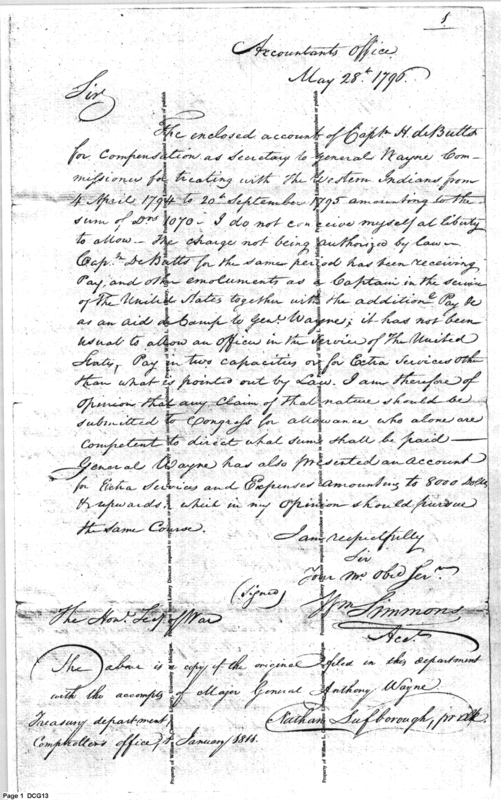 1
Accountants Office
May 28th 1796.
Sir
The enclosed account of Captn H. deButts
for Compensation as Secretary to General Wayne Com-
missioner for treating with the Western Indians from
4 April 1794 to 20th September 1795 amounting to the
sum of Drs 1070 - I do not conceive myself at liberty
to allow - the charge not being authorized by law -
Captn DeButts for the same period has been receiving
Pay, and other emoluments as a Captain in the service
of The United States together with the additional Pay &c
as an aid de Camp to Genl Wayne; it has not been
usual to allow an officer in the Service of The United
States, Pay in two capacities or for Extra Services other
than what is pointed out by Law. I am therefore of
opinion that any Claim of that nature should be
submitted to Congress for allowance who alone are
competent to direct what sum shall be paid -
General Wayne has also presented an account
for Extra Services and Expenses amounting to 8000 Dollrs
& upwards. which in my opinion should pursue
the same Course.
I am respectfully
Sir
Your Mo Obed Servt
(signed) Wm Simmons
Acct
The Honl Secy of War
The above is a copy of the original filed in this department
with the accompts of Major General Anthony Wayne.
Treasury department
Comptrollers office, January 1811.
Nathan Lufborough,
Page 1 DCG13